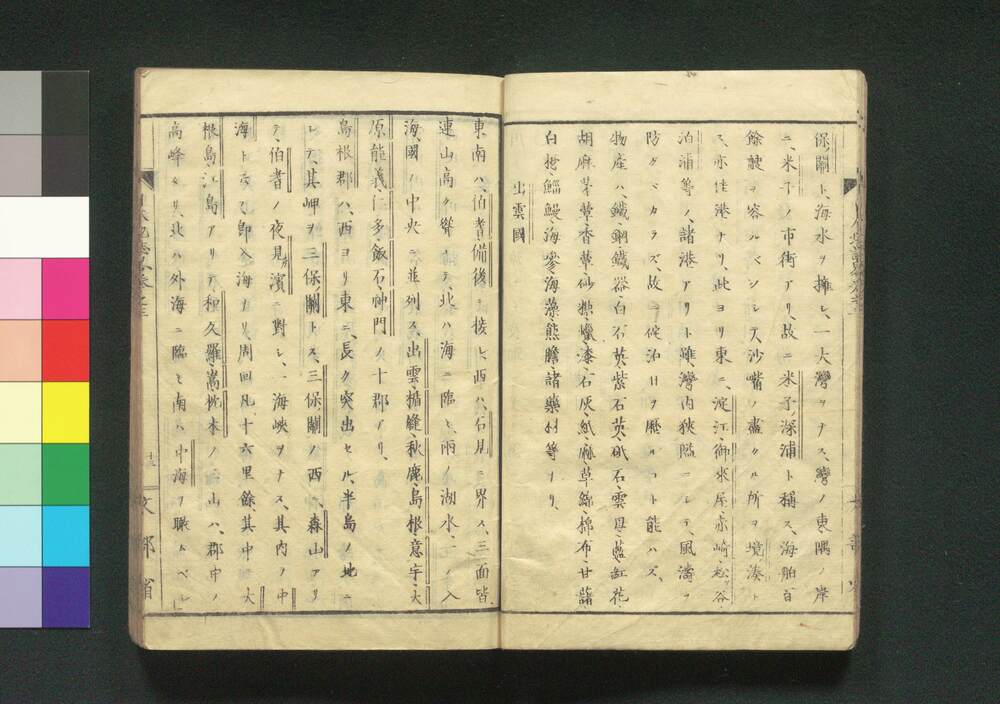 保關ト、海水ヲ擁シ、一大灣ヲナス、灣ノ東隅ノ岸
ニ、米子ノ市街アリ、故ニ米子深浦ト稱ス、海舶百
餘艘ヲ容ルベシ、シテ沙嘴ノ盡クル所ヲ境湊ト
ス、亦佳港ナリ、此ヨリ東ニ、淀江、御來屋、赤崎、松谷
泊浦等ノ、諸港アリト雖、灣内狹隘ニシテ、風濤ヲ
防グベカラズ、故ニ碇泊日ヲ歷ルコト能ハズ、
物產ハ鐵、鋼、鐵器、白石英、紫石英、砥石、雲母、藍、紅花、
胡麻、茅蕈、香蕈、仙、蠟、漆、石灰、紙、麻草綿、棉布、甘藷
白、鯔、鰻、海參、海藻、熊膽、諸藥材等ナリ、
出雲國
東南ハ、伯耆備後ニ接シ、西ハ、石見ニ界ス、三面皆
連山高ク聳エテ、北ハ海ニ臨ミ、兩ノ湖水、一ノ入
海、國ノ中央ニ並列ス、出雲、楯縫、秋鹿、島根、意宇、大
原、能義、仁多、飯石、神門ノ十郡アリ、
島根郡ハ、西ヨリ東ニ、長ク突出セル、半島ノ地ニ
シテ、其岬ヲ三保ノ關トス、三保關ノ西ニ森山アリ
テ、伯耆ノ夜見濱ニ對シ、一海峽ヲナス、其内ノ中
海ト云フ、卽入海ナリ、周回凡、十六里餘、其中ニ大
根島、江島アリテ、和久羅、嵩、枕木ノ三山ハ、郡中ノ
高峰タリ、北ハ外海ニ臨ミ、南ハ中海ヲ瞰ムベシ
文部省